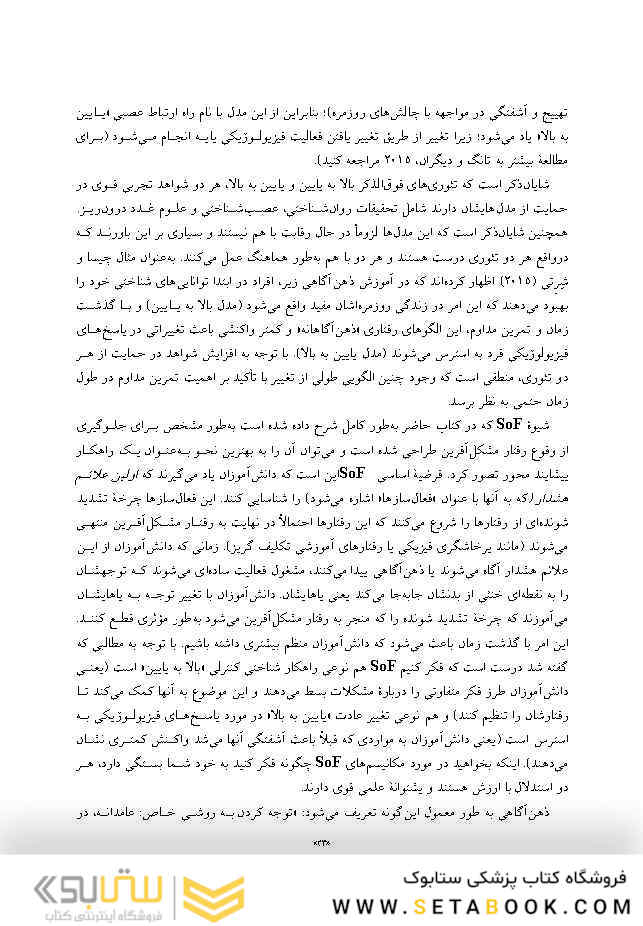 تهییج و آشفتگی در مواجهه با چالش‌های روزمره)؛ بنابراین از این مدل با نام راه ارتباط عصبی «پایین
به بالا» یاد می‌شود؛ زیرا تغییر از طریق تغییر یافتن فعالیت فیزیولوژیکی پایه انجام می‌شود (برای
مطالعهٔ بیشتر به تانگ و دیگران، ۲۰۱۵ مراجعه کنید).
شایان‌ذکر است که تئوری‌های فوق‌الذکر بالا به پایین و پایین به بالا، هر دو شواهد تجربی قوی در
حمایت از مدل‌هایشان دارند شامل تحقیقات روان‌شناختی، عصب‌شناختی و علوم غدد درون‌ریز.
همچنین شایان‌ذکر است که این مدل‌ها لزوماً در حال رقابت با هم نیستند و بسیاری بر این باورند که
درواقع هر دو تئوری درست هستند و هر دو با هم به‌طور هماهنگ عمل می‌کنند. به‌عنوان مثال چیسا و
شِرِتی (۲۰۱۵) اظهار کرده‌اند که در آموزش ذهن‌آگاهی زیر، افراد در ابتدا توانایی‌های شناختی خود را
بهبود می‌دهند که این امر در زندگی روزمره‌اشان مفید واقع می‌شود (مدل بالا به پایین) و با گذشت
زمان و تمرین مداوم، این الگوهای رفتاری «ذهن‌آگاهانه» و کمتر واکنشی باعث تغییراتی در پاسخ‌های
فیزیولوژیکی فرد به استرس می‌شوند (مدل پایین به بالا). با توجه به افزایش شواهد در حمایت از هر
دو تئوری، منطقی است که وجود چنین الگویی طولی از تغییر با تأکید بر اهمیت تمرین مداوم در طول
زمان حتمی به نظر برسد.
شیوهٔ SoF که در کتاب حاضر به‌طور کامل شرح داده شده است به‌طور مشخص برای جلوگیری
از وقوع رفتار مشکل‌آفرین طراحی شده است و می‌توان آن را به بهترین نحو به‌عنوان یک راهکار
پیشایند محور تصور کرد. فرضیهٔ اساسی SoFاین است که دانش‌آموزان یاد می‌گیرند که اولین علائم
هشدار(که به آنها با عنوان «فعال‌سازها» اشاره می‌شود) را شناسایی کنند. این فعال‌سازها چرخهٔ تشدید
شونده‌ای از رفتارها را شروع می‌کنند که این رفتارها احتمالاً در نهایت به رفتار مشکل‌آفرین منتهی
می‌شوند (مانند پرخاشگری فیزیکی یا رفتارهای آموزشی تکلیف گریز). زمانی که دانش‌آموزان از این
علائم هشدار آگاه می‌شوند یا ذهن‌آگاهی پیدا می‌کنند، مشغول فعالیت ساده‌ای می‌شوند که توجهشان
را به نقطه‌ای خنثی از بدنشان جابه‌جا می‌کند یعنی پاهایشان. دانش‌آموزان با تغییر توجه به پاهایشان
می‌آموزند که چرخهٔ تشدید شونده را که منجر به رفتار مشکل‌آفرین می‌شود به‌طور مؤثری قطع کنند.
این امر با گذشت زمان باعث می‌شود که دانش‌آموزان منظم بیشتری داشته باشیم. با توجه به مطالبی که
گفته شد درست است که فکر کنیم SoF هم نوعی راهکار شناختی کنترلی «بالا به پایین» است (یعنی
دانش‌آموزان طرز فکر متفاوتی را دربارهٔ مشکلات بسط می‌دهند و این موضوع به آنها کمک می‌کند تا
رفتارشان را تنظیم کنند) و هم نوعی تغییر عادت «پایین به بالا» در مورد پاسخ‌های فیزیولوژیکی به
استرس است (یعنی دانش‌آموزان به مواردی که قبلاً باعث آشفتگی آنها می‌شد واکنش کمتری نشان
می‌دهند). اینکه بخواهید در مورد مکانیسم‌های SoF چگونه فکر کنید به خود شما بستگی دارد، هر
دو استدلال با ارزش هستند و پشتوانهٔ علمی قوی دارند.
ذهن‌آگاهی به طور معمول این‌گونه تعریف می‌شود: «توجه کردن به روشی خاص: عامدانه، در
«۲۳»
فروشگاه کتاب پزشکی ستابوک
WWW.SETABOOK.COM
ستابوک
فروشگاه اینترنتی کتاب